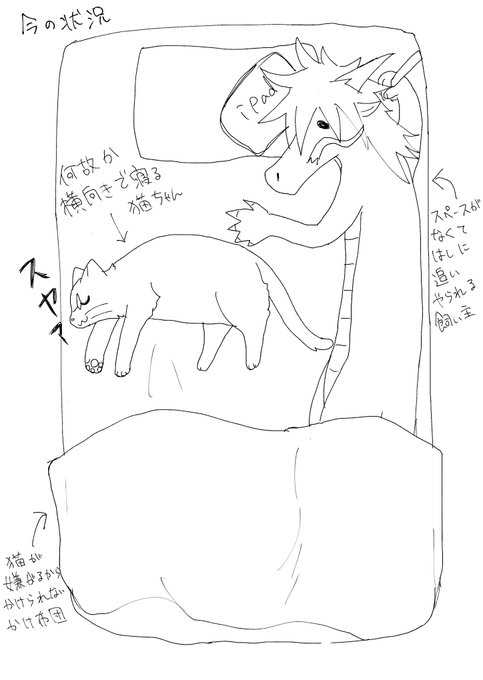 今の状況
iPad
何故か
横向きで寝る
猫ちゃん
スヤァ
スペースが
なくて
はしに
追い
やられる
飼い主
猫が
嫌がるから
かけられない
かけ布団